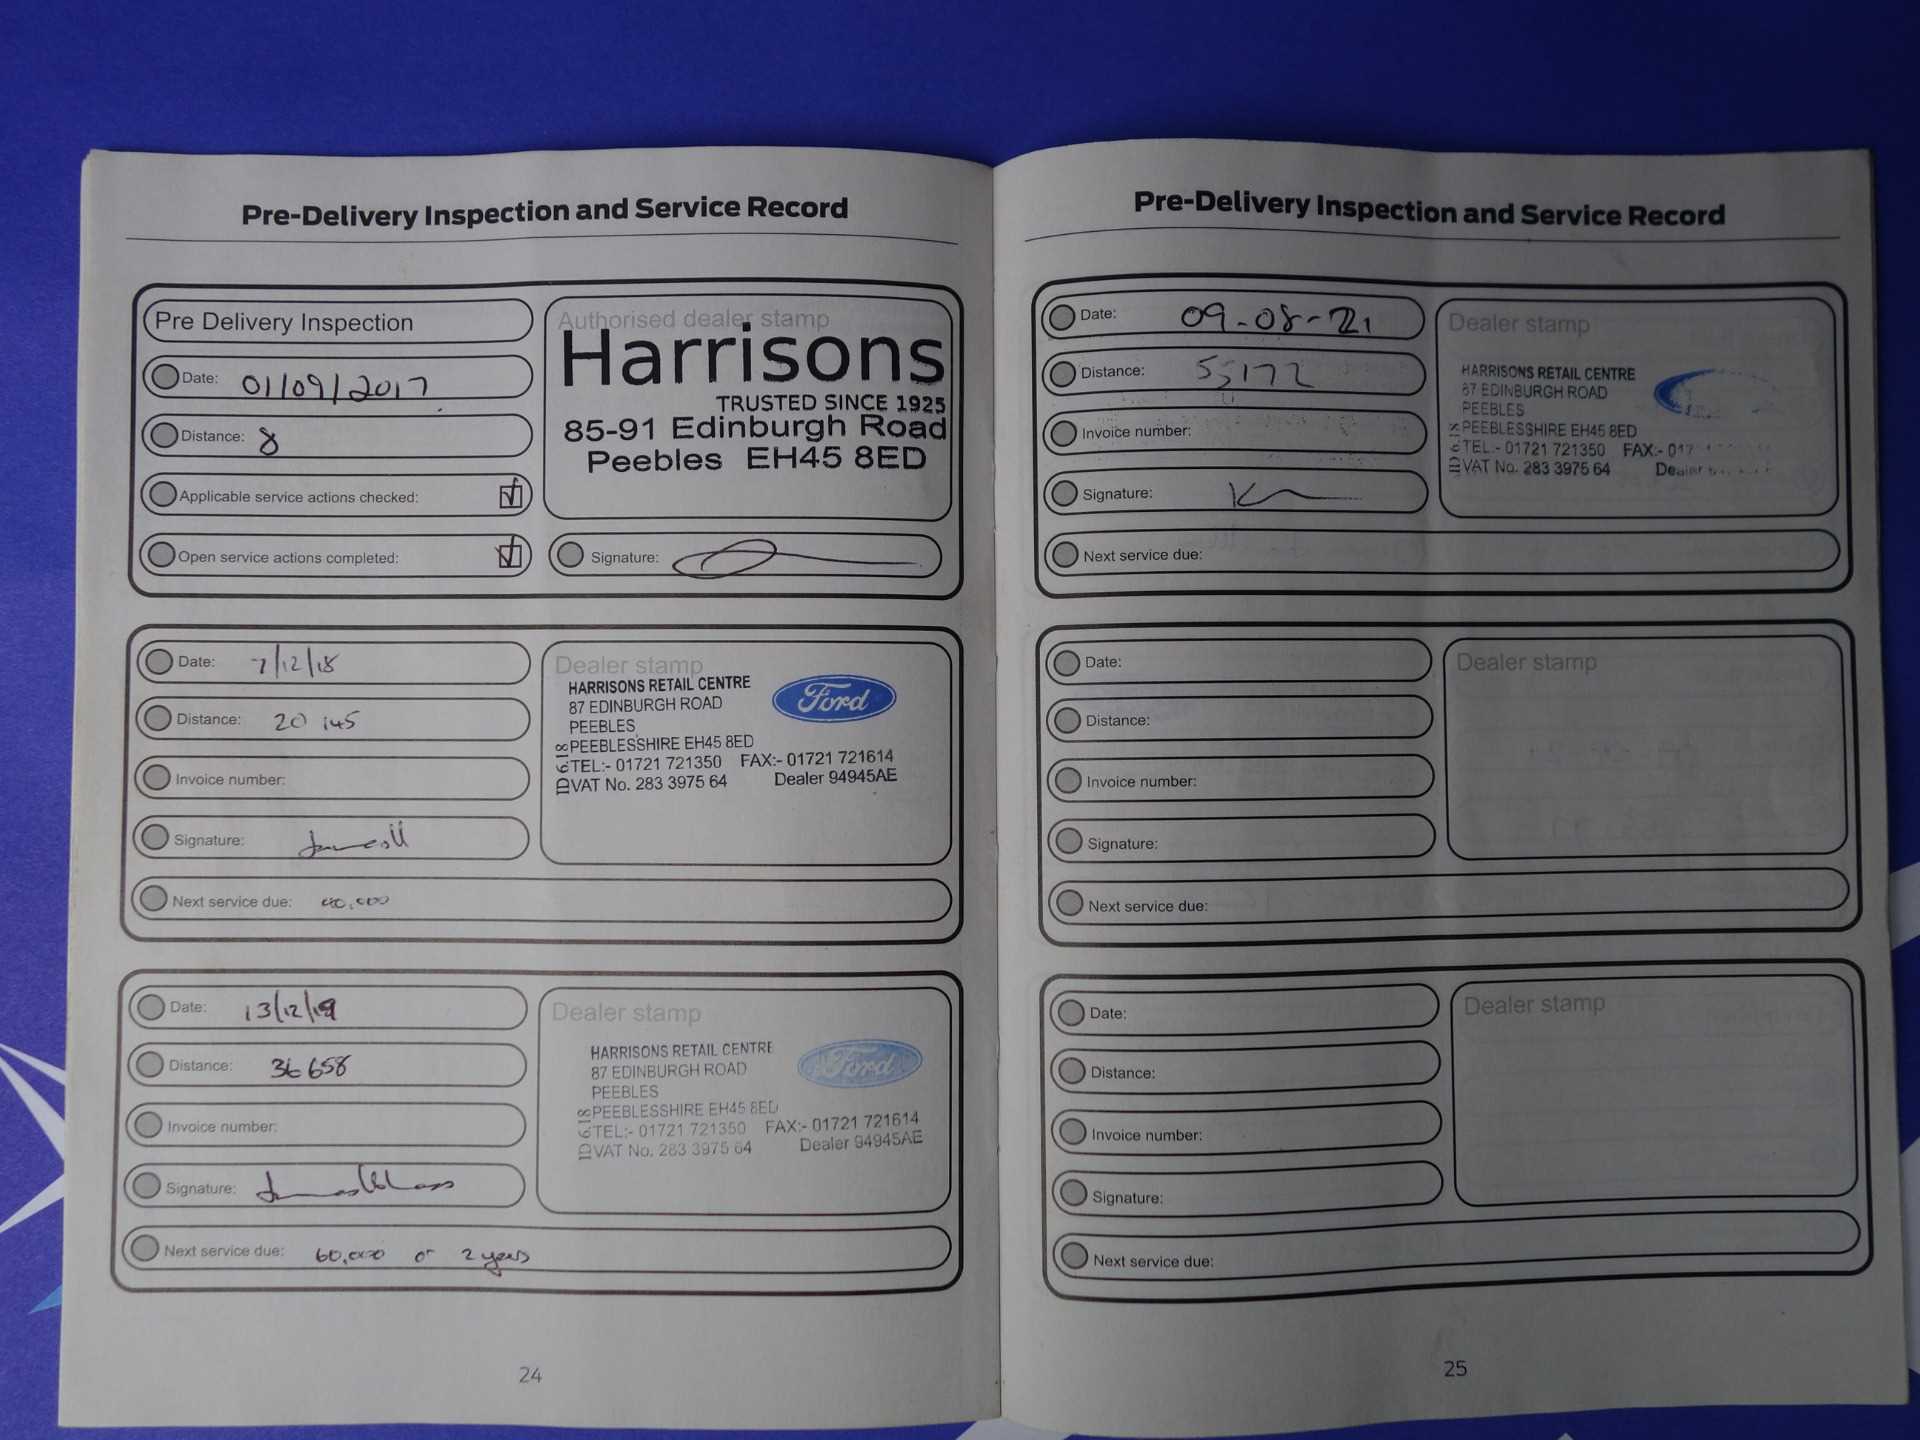 Pre-Delivery Inspection and Service Record
Pre Delivery Inspection
Date: 01/09/2017
Distance: 8
Applicable service actions checked:
Open service actions completed:
Authorised dealer stamp
Harrisons
TRUSTED SINCE 1925
85-91 Edinburgh Road
Peebles EH45 8ED
Signature:
Date: 7/12/18
Distance: 20 145
Invoice number:
Signature:
Next service due: 40,000
Dealer stamp
HARRISONS RETAIL CENTRE
Ford
87 EDINBURGH ROAD
PEEBLES
PEEBLESSHIRE EH45 8ED
TEL:- 01721 721350 FAX:- 01721 721614
VAT No. 283 3975 64 Dealer 94945AE
ID 618
Date: 13/12/19
Distance: 36 658
Invoice number:
Signature:
Next service due: 60,000 or 2 years
Dealer stamp
HARRISONS RETAIL CENTRE
Ford
87 EDINBURGH ROAD
PEEBLES
PEEBLESSHIRE EH45 8ED
TEL:- 01721 721350 FAX:- 01721 721614
VAT No. 283 3975 64 Dealer 94945AE
ID 618
24
Pre-Delivery Inspection and Service Record
Date: 09-08-21
Distance: 55172
Invoice number:
Signature:
Next service due:
Dealer stamp
HARRISONS RETAIL CENTRE
87 EDINBURGH ROAD
PEEBLES
PEEBLESSHIRE EH45 8ED
TEL:- 01721 721350 FAX:- 017
VAT No. 283 3975 64 Dealer
ID 618
Date:
Distance:
Invoice number:
Signature:
Next service due:
Dealer stamp
Date:
Distance:
Invoice number:
Signature:
Next service due:
Dealer stamp
25